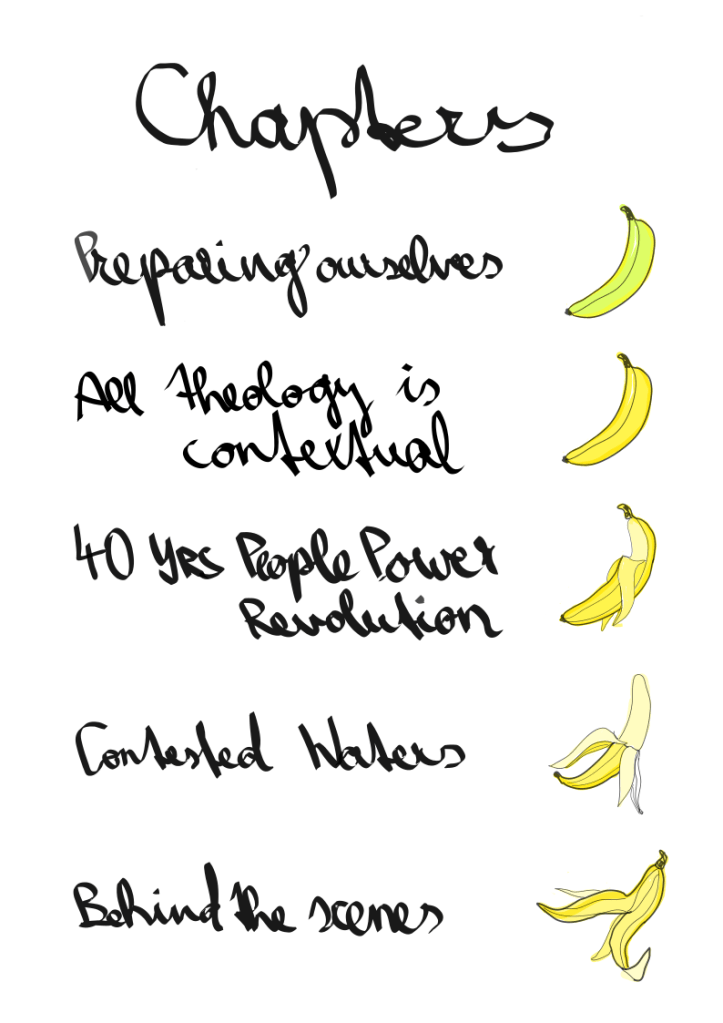 Chapters
Preparing ourselves
All theology is
contextual
40 yrs People Power
Revolution
Contested Waters
Behind the scenes